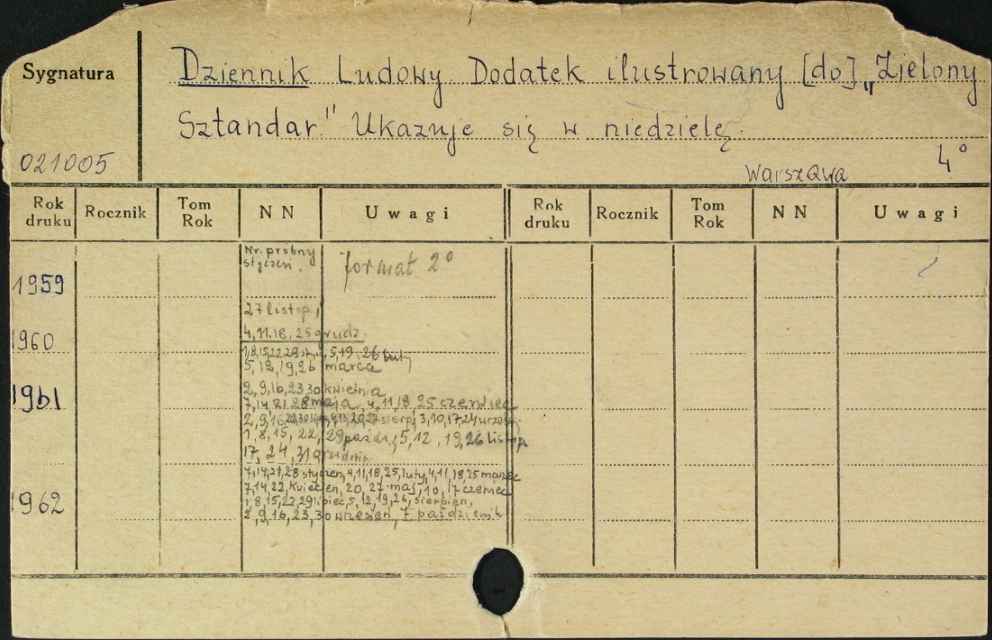 Sygnatura
Dziennik Ludowy Dodatek ilustrowany [do] „Zielony
Sztandar." Ukazuje się w niedzielę.
021005
Warszawa
4°
Rok druku Rocznik Tom Rok NN Uwagi Rok druku Rocznik Tom Rok NN Uwagi
1959 Nr. próbny
styczeń. format 2°
27 listop.,
1960 4, 11. 18, 25 grudz.
1,8,15,22,29 st., 5, 19, 26 luty
5, 12, 19, 26 marca
1961 2, 9, 16, 23 30 kwietnia
7, 14 21 28 maja, 4, 11, 18 25 czerwiec
2, 9, 16 sierp, 3, 10, 17, 24 wrzes.
1, 8, 15, 22, 29 paźdz, 5, 12, 19, 26 listop.
17, 24, 31 grudnia
7, 14, 21, 28 styczeń, 4, 11, 18, 25, luty, 4, 11, 18, 25 marzec
7, 14, 22, kwiecień, 20, 27 maj, 10, 17 czerwca
1962 1, 8, 15, 22, 29 lipiec, 5, 12, 19, 26, sierpień,
2, 9, 16, 23, 30 wrzesień, 7 październik